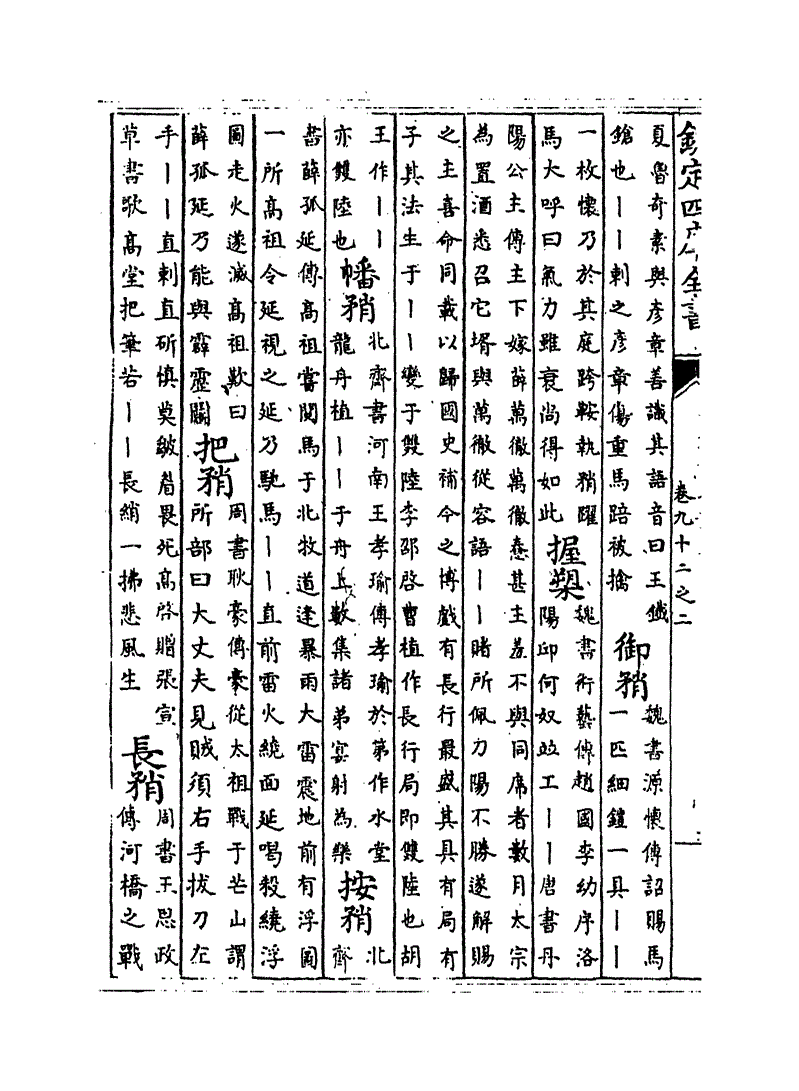 欽定四庫全書
卷九十二之二
夏魯奇素與彦章善識其語音曰王鐵
鎗也丨丨刺之彦章傷重馬踣被擒
御矟
魏書源懷傳詔賜馬
一匹細鎧一具丨丨
一枚懷乃於其庭跨鞍執矟躍
馬大呼曰氣力雖衰尚得如此
握槊
魏書術藝傳趙國李幼序洛
陽邱何奴竝工丨丨唐書丹
陽公主傳主下嫁薛萬徹萬徹惷甚主羞不與同席者數月太宗
為置酒悉召它壻與萬徹從容語丨丨賭所佩刀陽不勝遂解賜
之主喜命同載以歸國史補今之博戲有長行最盛其具有局有
子其法生于丨丨變于雙陸李邵啓曹植作長行局即雙陸也胡
王作丨丨
亦雙陸也
幡矟
北齊書河南王孝瑜傳孝瑜於第作水堂
龍舟植丨丨于舟上數集諸弟宴射為樂
按矟
北
齊
書薛孤延傳高祖嘗閱馬于北牧道逢暴雨大雷震地前有浮圖
一所高祖令延視之延乃馳馬丨丨直前雷火繞面延喝殺繞浮
圖走火遂滅高祖歎曰
薛孤延乃能與霹靂鬬
把矟
周書耿豪傳豪從太祖戰于芒山謂
所部曰大丈夫見賊須右手拔刀左
手丨丨直刺直斫慎莫皺眉畏死高啓贈張宣
草書歌高堂把筆若丨丨長綃一拂悲風生
長矟
周書王思政
傳河橋之戰